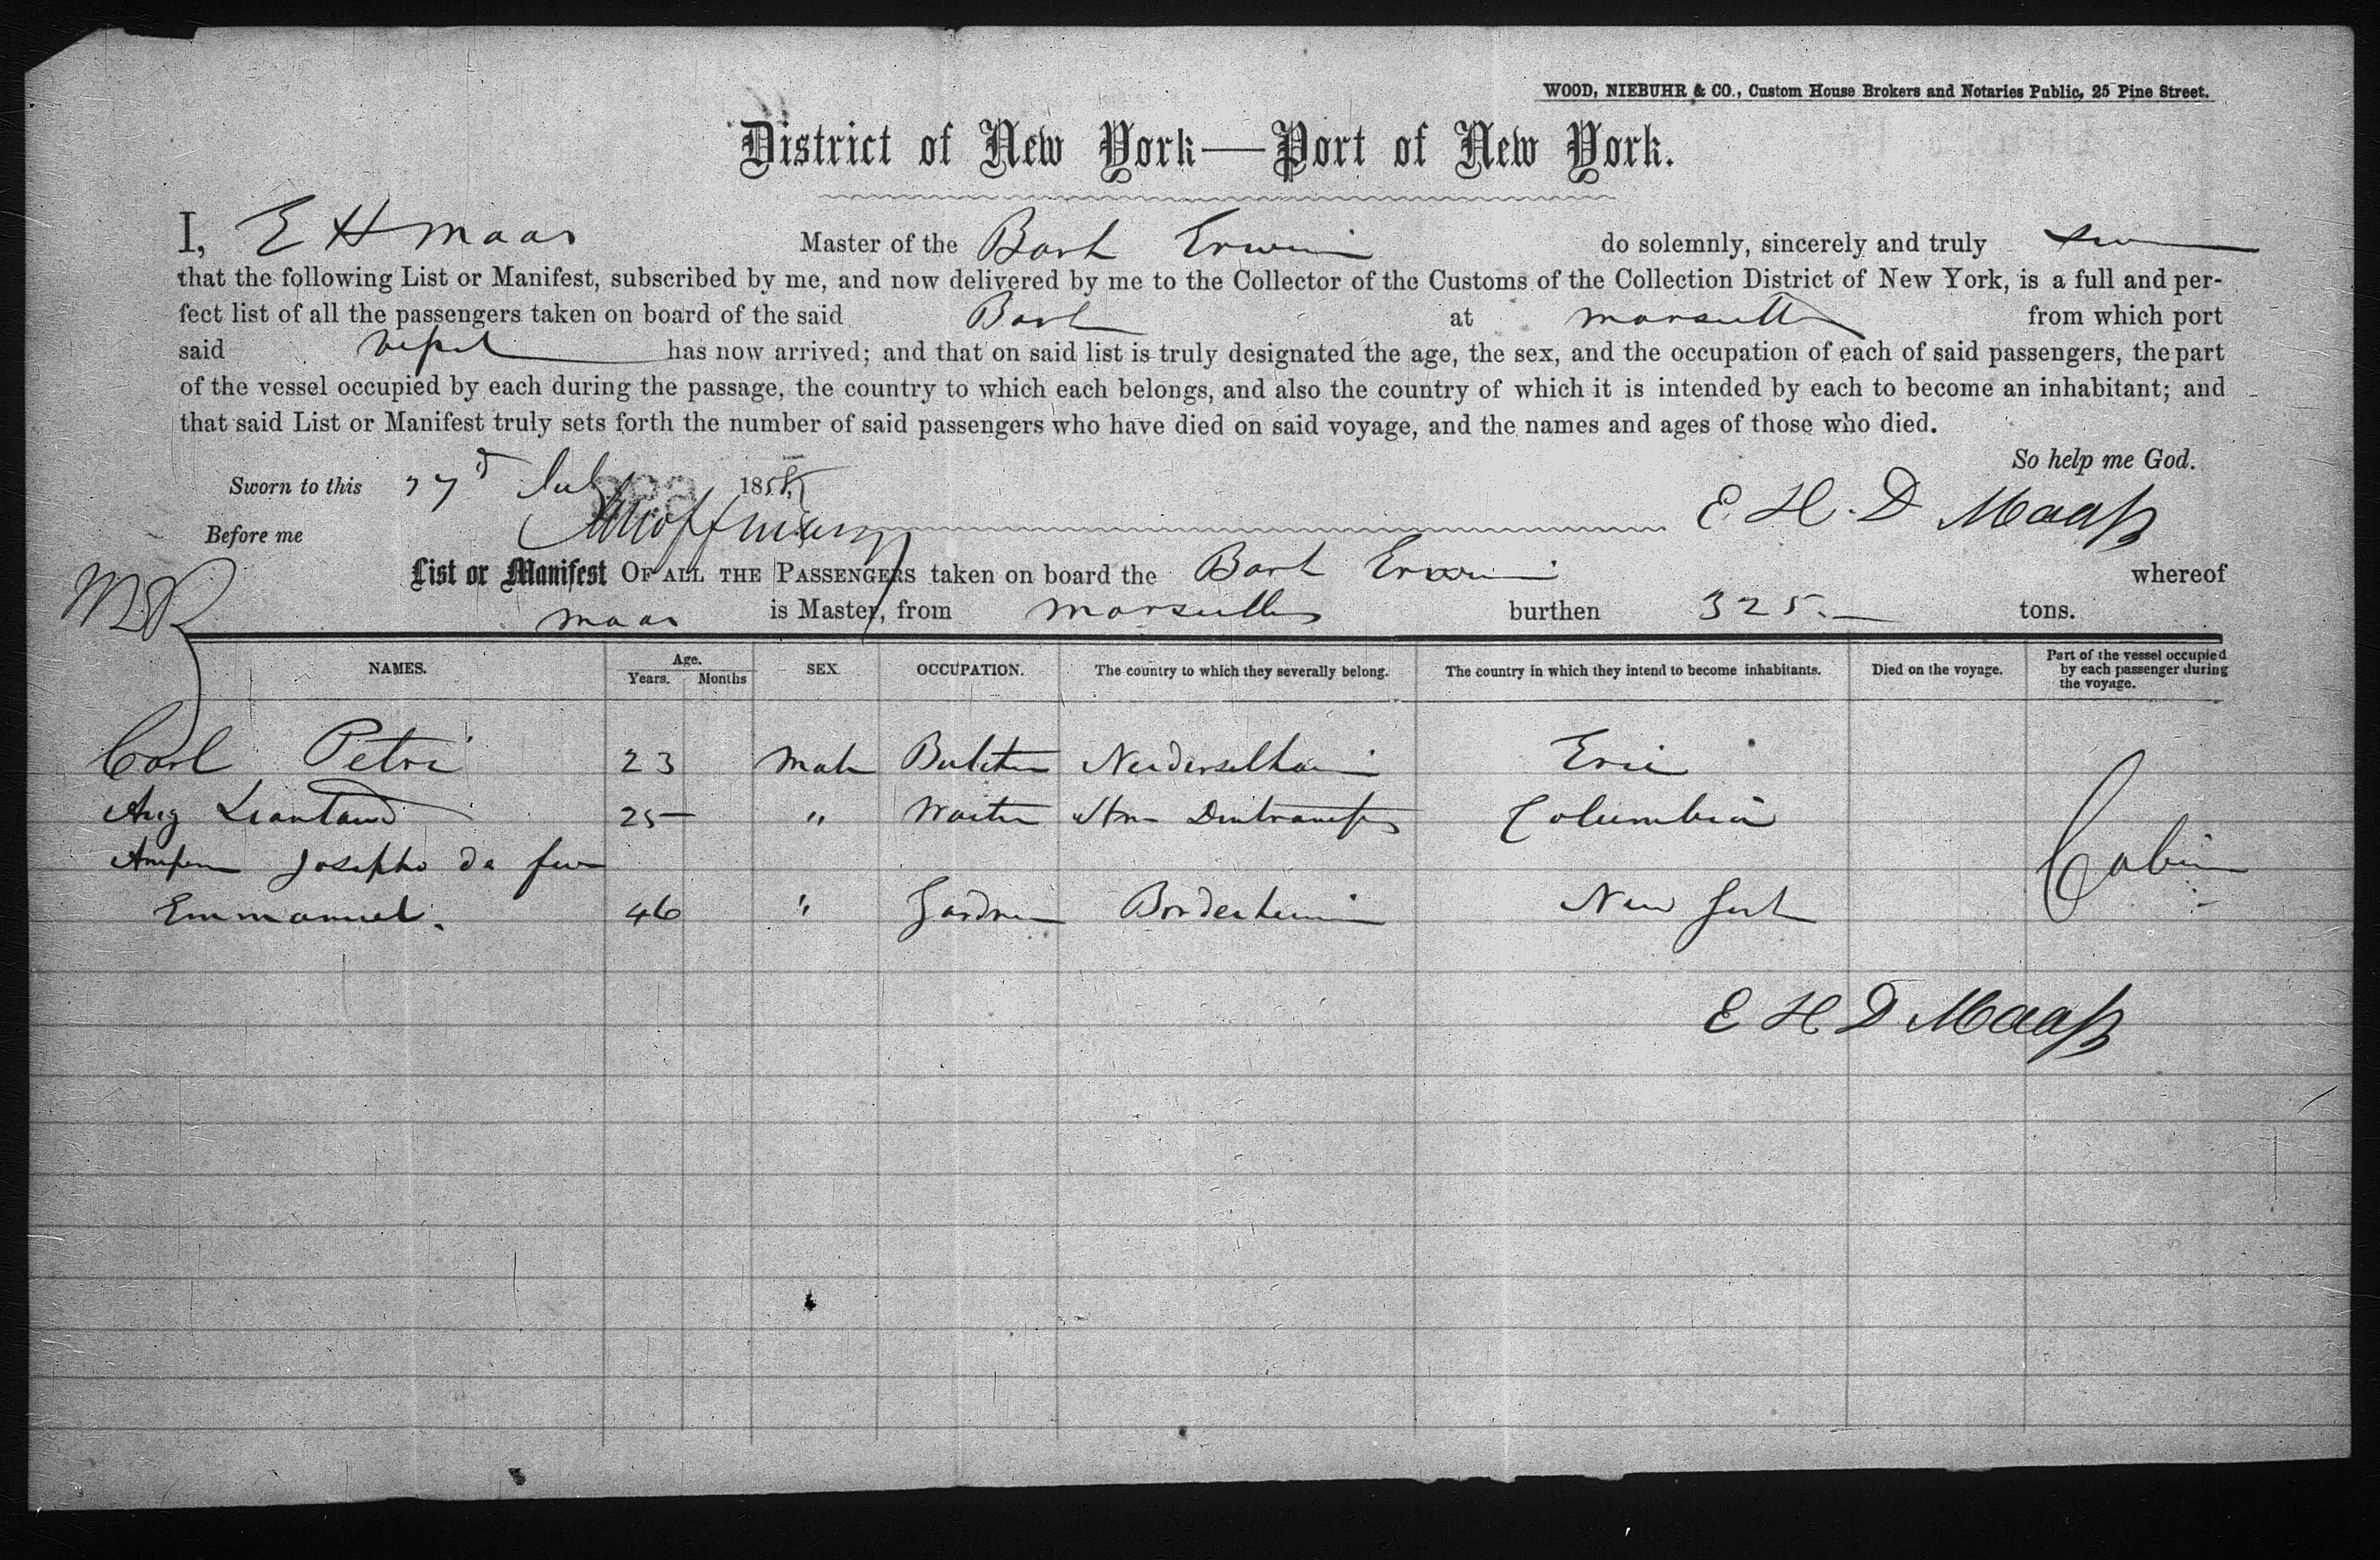 WOOD, NIEBUHR & CO., Custom House Brokers and Notaries Public, 25 Pine Street.
District of New York—Port of New York.
I, E H Maas Master of the Bark Erwin do solemnly, sincerely and truly
that the following List or Manifest, subscribed by me, and now delivered by me to the Collector of the Customs of the Collection District of New York, is a full and per-
fect list of all the passengers taken on board of the said Bark at Marseille from which port
said vessel has now arrived; and that on said list is truly designated the age, the sex, and the occupation of each of said passengers, the part
of the vessel occupied by each during the passage, the country to which each belongs, and also the country of which it is intended by each to become an inhabitant; and
that said List or Manifest truly sets forth the number of said passengers who have died on said voyage, and the names and ages of those who died.
So help me God.
Sworn to this 27 July 185
E. H. D Maaß
Before me
List or Manifest OF ALL THE PASSENGERS taken on board the Bark Erwin whereof
Maas is Master, from Marseilles burthen 325.— tons.
NAMES. Age. Years. Months SEX OCCUPATION. The country to which they severally belong. The country in which they intend to become inhabitants. Died on the voyage. Part of the vessel occupied by each passenger during the voyage.
Carl Petri 23 Male Erie
Aug 25 " Waiter Columbia
Josepho de Cabin
Emmanuel. 46 " Gardner New York
E H D Maaß